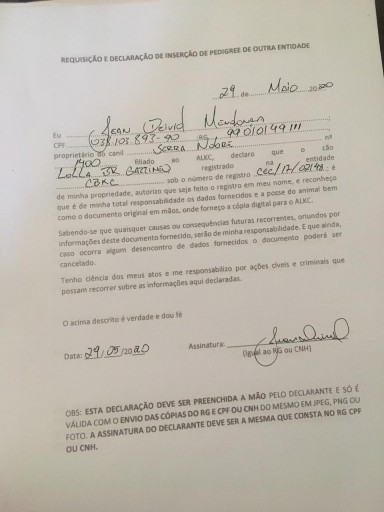 REQUISIÇÃO E DECLARAÇÃO DE INSERÇÃO DE PEDIGREE DE OUTRA ENTIDADE
29 de Maio 2020
Eu Jean Deivid
CPF 038.103.893-90 RG 99010149111
proprietário do canil Serra Nobre na
1400 filiado ao ALKC, declaro que o cão
Lolla registrado na entidade
CBKC sob o número de registro é
de minha propriedade, autorizo que seja feito o registro em meu nome, e reconheço
que é de minha total responsabilidade os dados fornecidos e a posse do animal bem
como o documento original em mãos, onde forneço a cópia digital para o ALKC.
Sabendo-se que quaisquer causas ou consequências futuras recorrentes, oriundos por
informações deste documento fornecido, serão de minha responsabilidade. E que ainda,
caso ocorra algum desencontro de dados fornecidos o documento poderá ser
cancelado.
Tenho ciência dos meus atos e me responsabilizo por ações cíveis e criminais que
possam recorrer sobre as informações aqui declaradas.
O acima descrito é verdade e dou fé
Data: 29/05/2020 Assinatura:
(Igual ao RG ou CNH)
OBS: ESTA DECLARAÇÃO DEVE SER PREENCHIDA A MÃO PELO DECLARANTE E SÓ É
VÁLIDA COM O ENVIO DAS CÓPIAS DO RG E CPF OU CNH DO MESMO EM JPEG, PNG OU
FOTO. A ASSINATURA DO DECLARANTE DEVE SER A MESMA QUE CONSTA NO RG CPF
OU CNH.